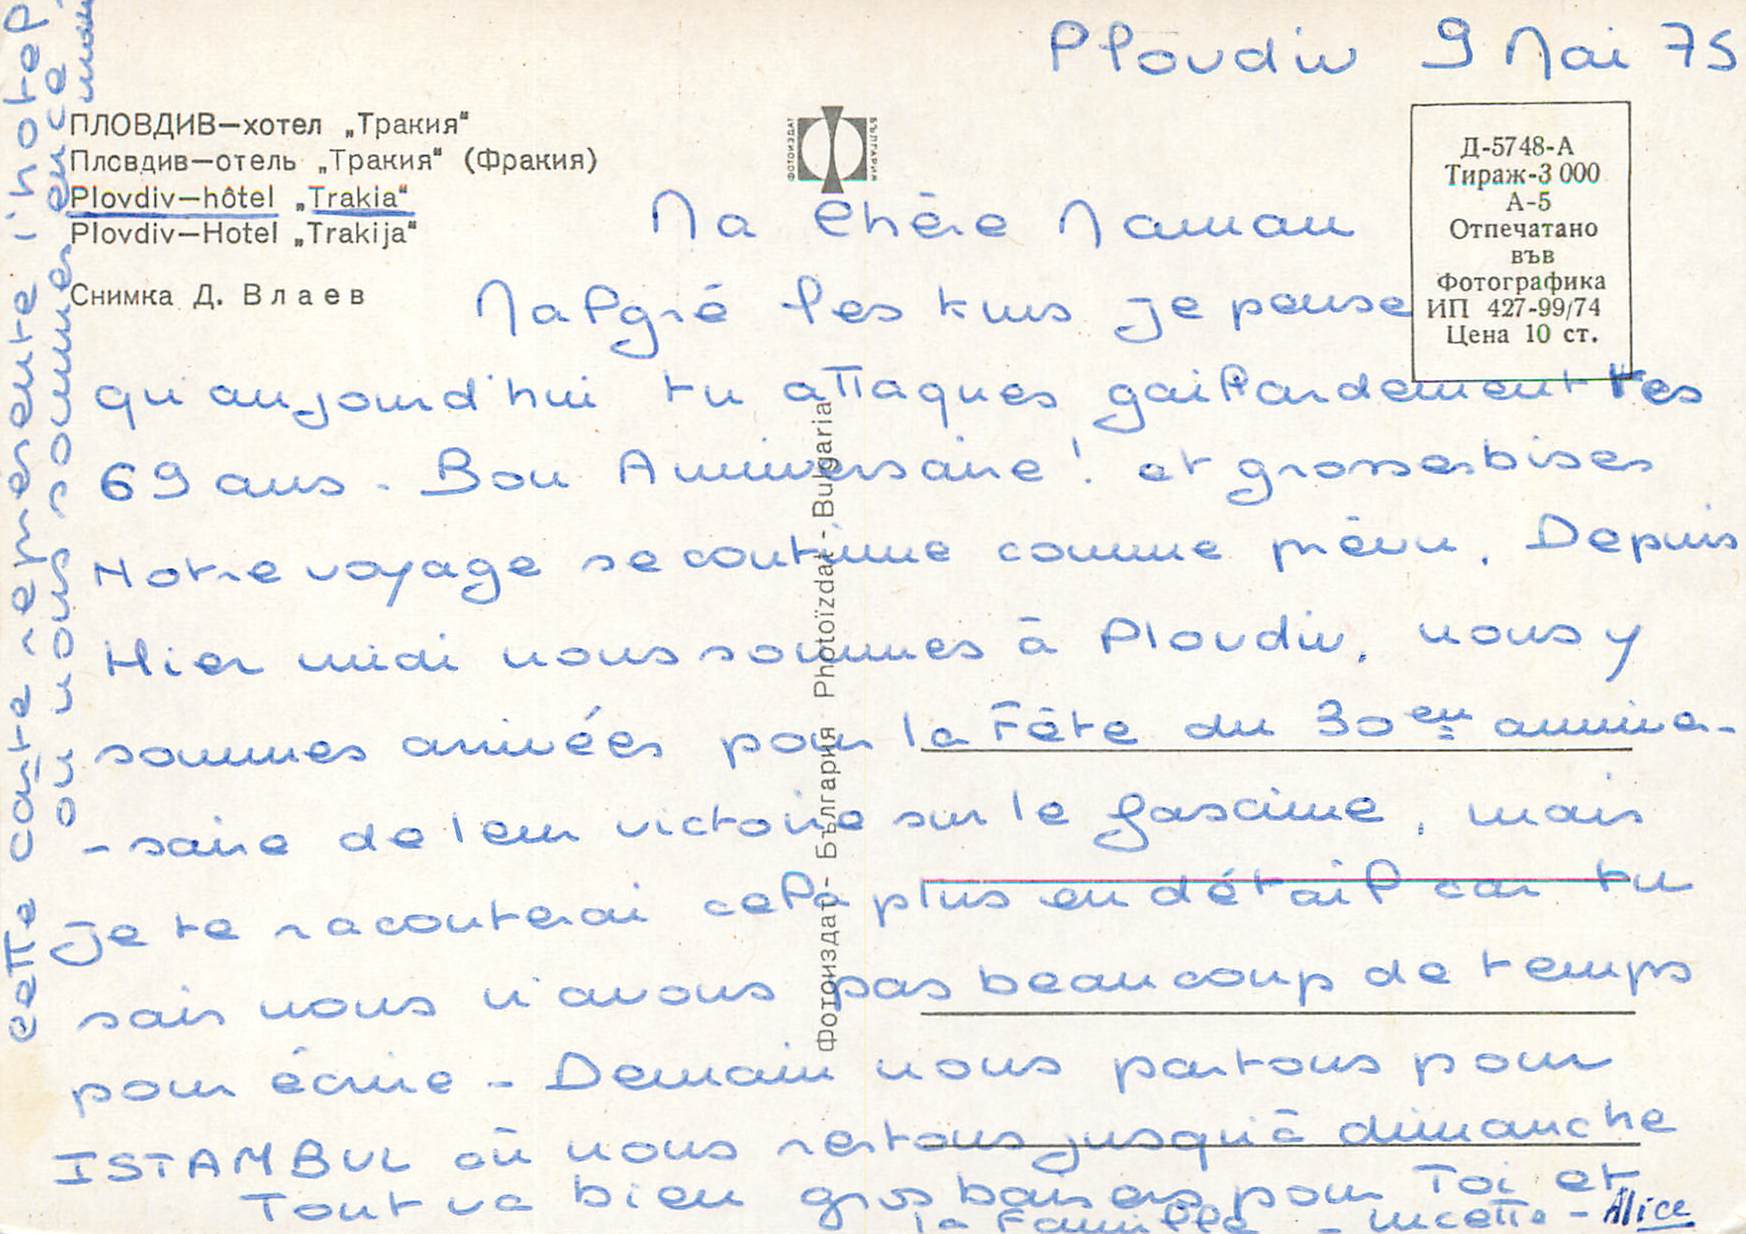 Plovdiv 9 Mai 75
ПЛОВДИВ—хотел „Тракия"
Плсвдив—отель „Тракия" (Фракия)
Plovdiv—hôtel „Trakia"
Plovdiv—Hotel „Trakija"
Снимка Д. Влаев
ФОТОИЗДАТ
БЪЛГАРИЯ
Д-5748-А
Тираж-3 000
А-5
Отпечатано
във
Фотографика
ИП 427-99/74
Цена 10 ст.
Ma Chère Maman
Malgré les kms je pense
qu'aujourd'hui tu attaques gaillardement tes
69 ans. Bon Anniversaire! et grosses bises
Notre voyage se continue comme prévu. Depuis
Hier midi nous sommes à Plovdiv, nous y
sommes arrivées pour la Fête du 30em annive-
-saire de leur victoire sur le fascime, mais
je te raconterai cela plus en détail car tu
sais nous n'avons pas beaucoup de temps
pour écrire - Demain nous partons pour
ISTAMBUL où nous restons jusqu'à dimanche
Tout va bien gros baisers pour Toi et
la Famille - Lucette - Alice
cette carte représente l'hotel
où nous sommes en ce
Фотоиздат - България Photoïzdat - Bulgaria